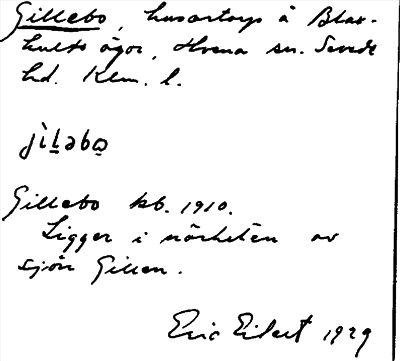 Gillebo, husartorp å Blax-
hults ägor, Hvena sn. Sevede
hd. Klm. l.
jìlebo
Gillebo kb. 1910.
Ligger i närheten av
sjön Gillen.
Eric Eilert 1929